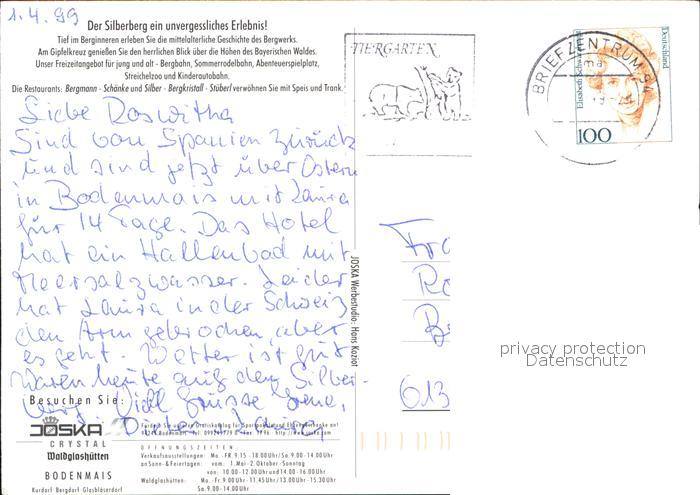 1.4.99
Der Silberberg ein unvergessliches Erlebnis!
Tief im Berginneren erleben Sie die mittelalterliche Geschichte des Bergwerks.
Am Gipfelkreuz genießen Sie den herrlichen Blick über die Höhen des Bayerischen Waldes.
Unser Freizeitangebot für jung und alt - Bergbahn, Sommerrodelbahn, Abenteuerspielplatz,
Streichelzoo und Kinderautobahn.
Die Restaurants: Bergmann - Schänke und Silber - Bergkristall - Stüberl verwöhnen Sie mit Speis und Trank.
Liebe Roswitha
Sind von Spanien zurück
und sind jetzt über Ostern
in Bodenmais mit Laura
für 14 Tage. Das Hotel
hat ein Hallenbad mit
Meersalzwasser. Leider
hat Laura in der Schweiz
den Arm gebrochen, aber
es geht. Wetter ist gut
waren heute auf dem Silber-
berg. Viele Grüsse Irene,
Besuchen Sie:
JOSKA
CRYSTAL
Waldglashütten
BODENMAIS
Kurdorf · Bergdorf · Glasbläserdorf
ÖFFNUNGSZEITEN
Verkaufsausstellungen: Mo.-FR 9.15 - 18.00 Uhr/Sa 9.00-14.00 Uhr
an Sonn- & Feiertagen: vom 1. Mai - 2. Oktober - Sonntag
von 10.00-12.00 Uhr und 14.00-16.00 Uhr
Waldglashütten: Mo.-Fr 9.00 Uhr-11.45 Uhr/13.00 Uhr - 15.30 Uhr
Sa. 9.00-14.00 Uhr
JOSKA Werbestudio: Hans Koziol
TIERGARTEN
BRIEFZENTRUM 94
Deutschland
Elisabeth Schwarz
100
Fra
Ro
613
privacy protection
Datenschutz